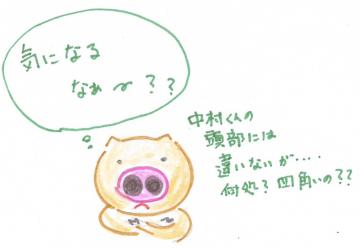 気になる
なぁ〜??
中村くんの
頭部には
違いないが....
何処?四角いの??